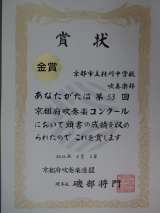 賞状
金賞
京都市立桂川中学校
吹奏楽部
あなたがたは第53回
京都府吹奏楽コンクール
において頭書の成績を収め
られたのでこれを賞します
京都府吹奏楽連盟
理事長 磯部将門